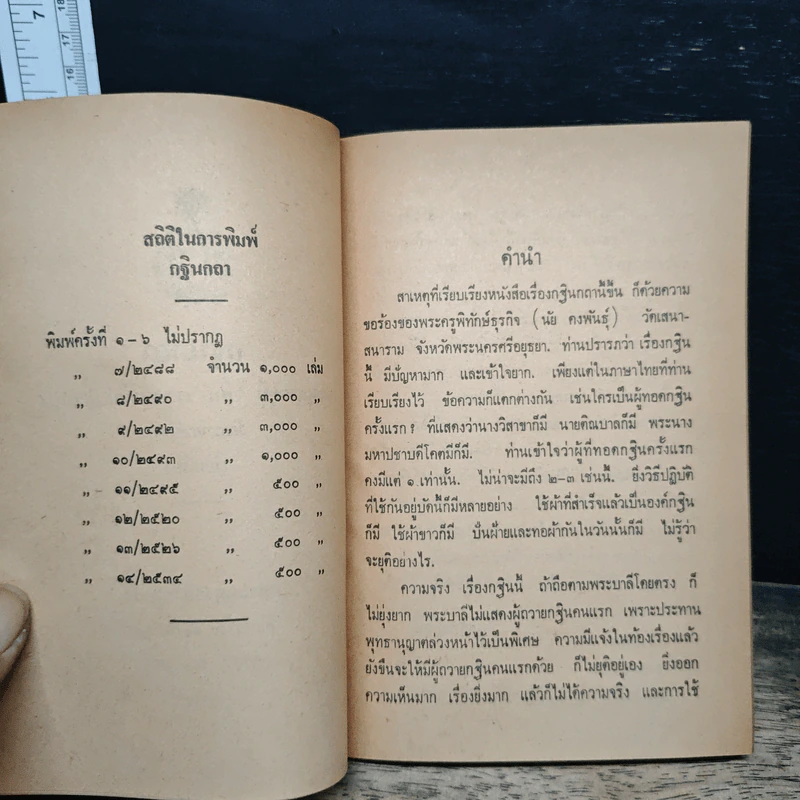 7
18
17
16
สถิติในการพิมพ์
กฐินกถา
พิมพ์ครั้งที่ ๑-๖ ไม่ปรากฏ
„ ๗/๒๔๘๘ จำนวน ๑,๐๐๐ เล่ม
„ ๘/๒๔๙๐ „ ๓,๐๐๐ „
„ ๙/๒๔๙๒ „ ๓,๐๐๐ „
„ ๑๐/๒๔๙๓ „ ๑,๐๐๐ „
„ ๑๑/๒๔๙๕ „ ๕๐๐ „
„ ๑๒/๒๕๒๐ „ ๕๐๐ „
„ ๑๓/๒๕๒๖ „ ๕๐๐ „
„ ๑๔/๒๕๓๔ „ ๕๐๐ „
คำนำ
สาเหตุที่เรียบเรียงหนังสือเรื่องกฐินกถานี้ขึ้น ก็ด้วยความ
ขอร้องของพระครูพิทักษ์ธุรกิจ (นัย คงพันธุ์) วัดเสนา-
สนาราม จังหวัดพระนครศรีอยุธยา. ท่านปรารภว่า เรื่องกฐิน
นี้ มีปัญหามาก และเข้าใจยาก. เพียงแต่ในภาษาไทยที่ท่าน
เรียบเรียงไว้ ข้อความก็แตกต่างกัน เช่นใครเป็นผู้ทอดกฐิน
ครั้งแรก? ที่แสดงว่านางวิสาขาก็มี นายติณบาลก็มี พระนาง
มหาปชาบดีโคตมีก็มี. ท่านเข้าใจว่าผู้ที่ทอดกฐินครั้งแรก
คงมีแต่ ๑ เท่านั้น. ไม่น่าจะมีถึง ๒-๓ เช่นนี้. ยิ่งวิธีปฏิบัติ
ที่ใช้กันอยู่บัดนี้ก็มีหลายอย่าง ใช้ผ้าที่สำเร็จแล้วเป็นองค์กฐิน
ก็มี ใช้ผ้าขาวก็มี ปั่นฝ้ายและทอผ้ากันในวันนั้นก็มี ไม่รู้ว่า
จะยุติอย่างไร.
ความจริง เรื่องกฐินนี้ ถ้าถือตามพระบาลีโดยตรง ก็
ไม่ยุ่งยาก พระบาลีไม่แสดงผู้ถวายกฐินคนแรก เพราะประทาน
พุทธานุญาตล่วงหน้าไว้เป็นพิเศษ ความมีแจ้งในท้องเรื่องแล้ว
ยังขืนจะให้มีผู้ถวายกฐินคนแรกด้วย ก็ไม่ยุติอยู่เอง ยิ่งออก
ความเห็นมาก เรื่องยิ่งมาก แล้วก็ไม่ได้ความจริง และการใช้